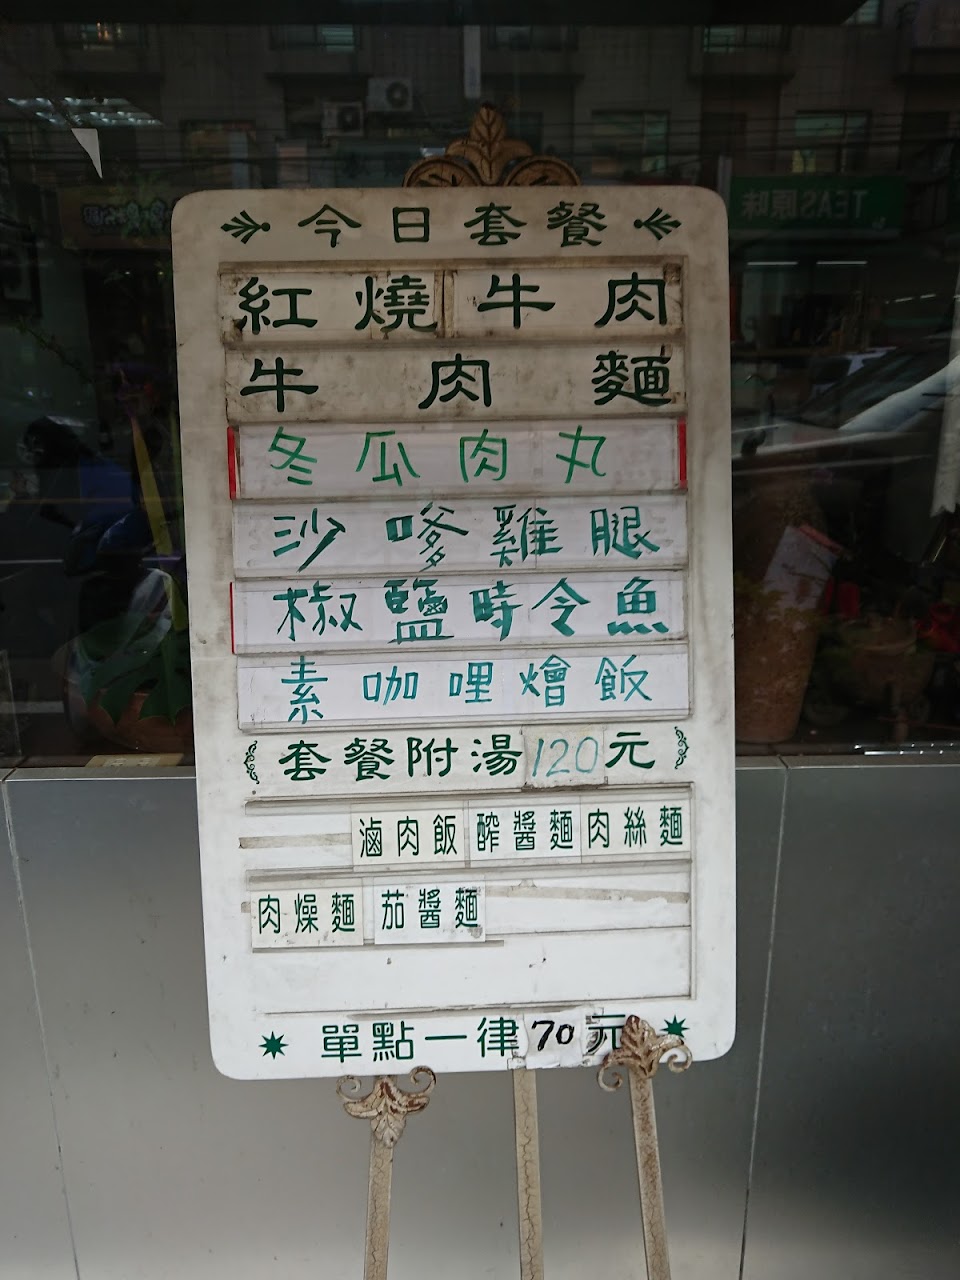 TEAS原味
今日套餐
紅燒牛肉
牛肉麵
冬瓜肉丸
沙嗲雞腿
椒鹽時令魚
素咖哩燴飯
套餐附湯120元
滷肉飯 醡醬麵 肉絲麵
肉燥麵 茄醬麵
單點一律70元